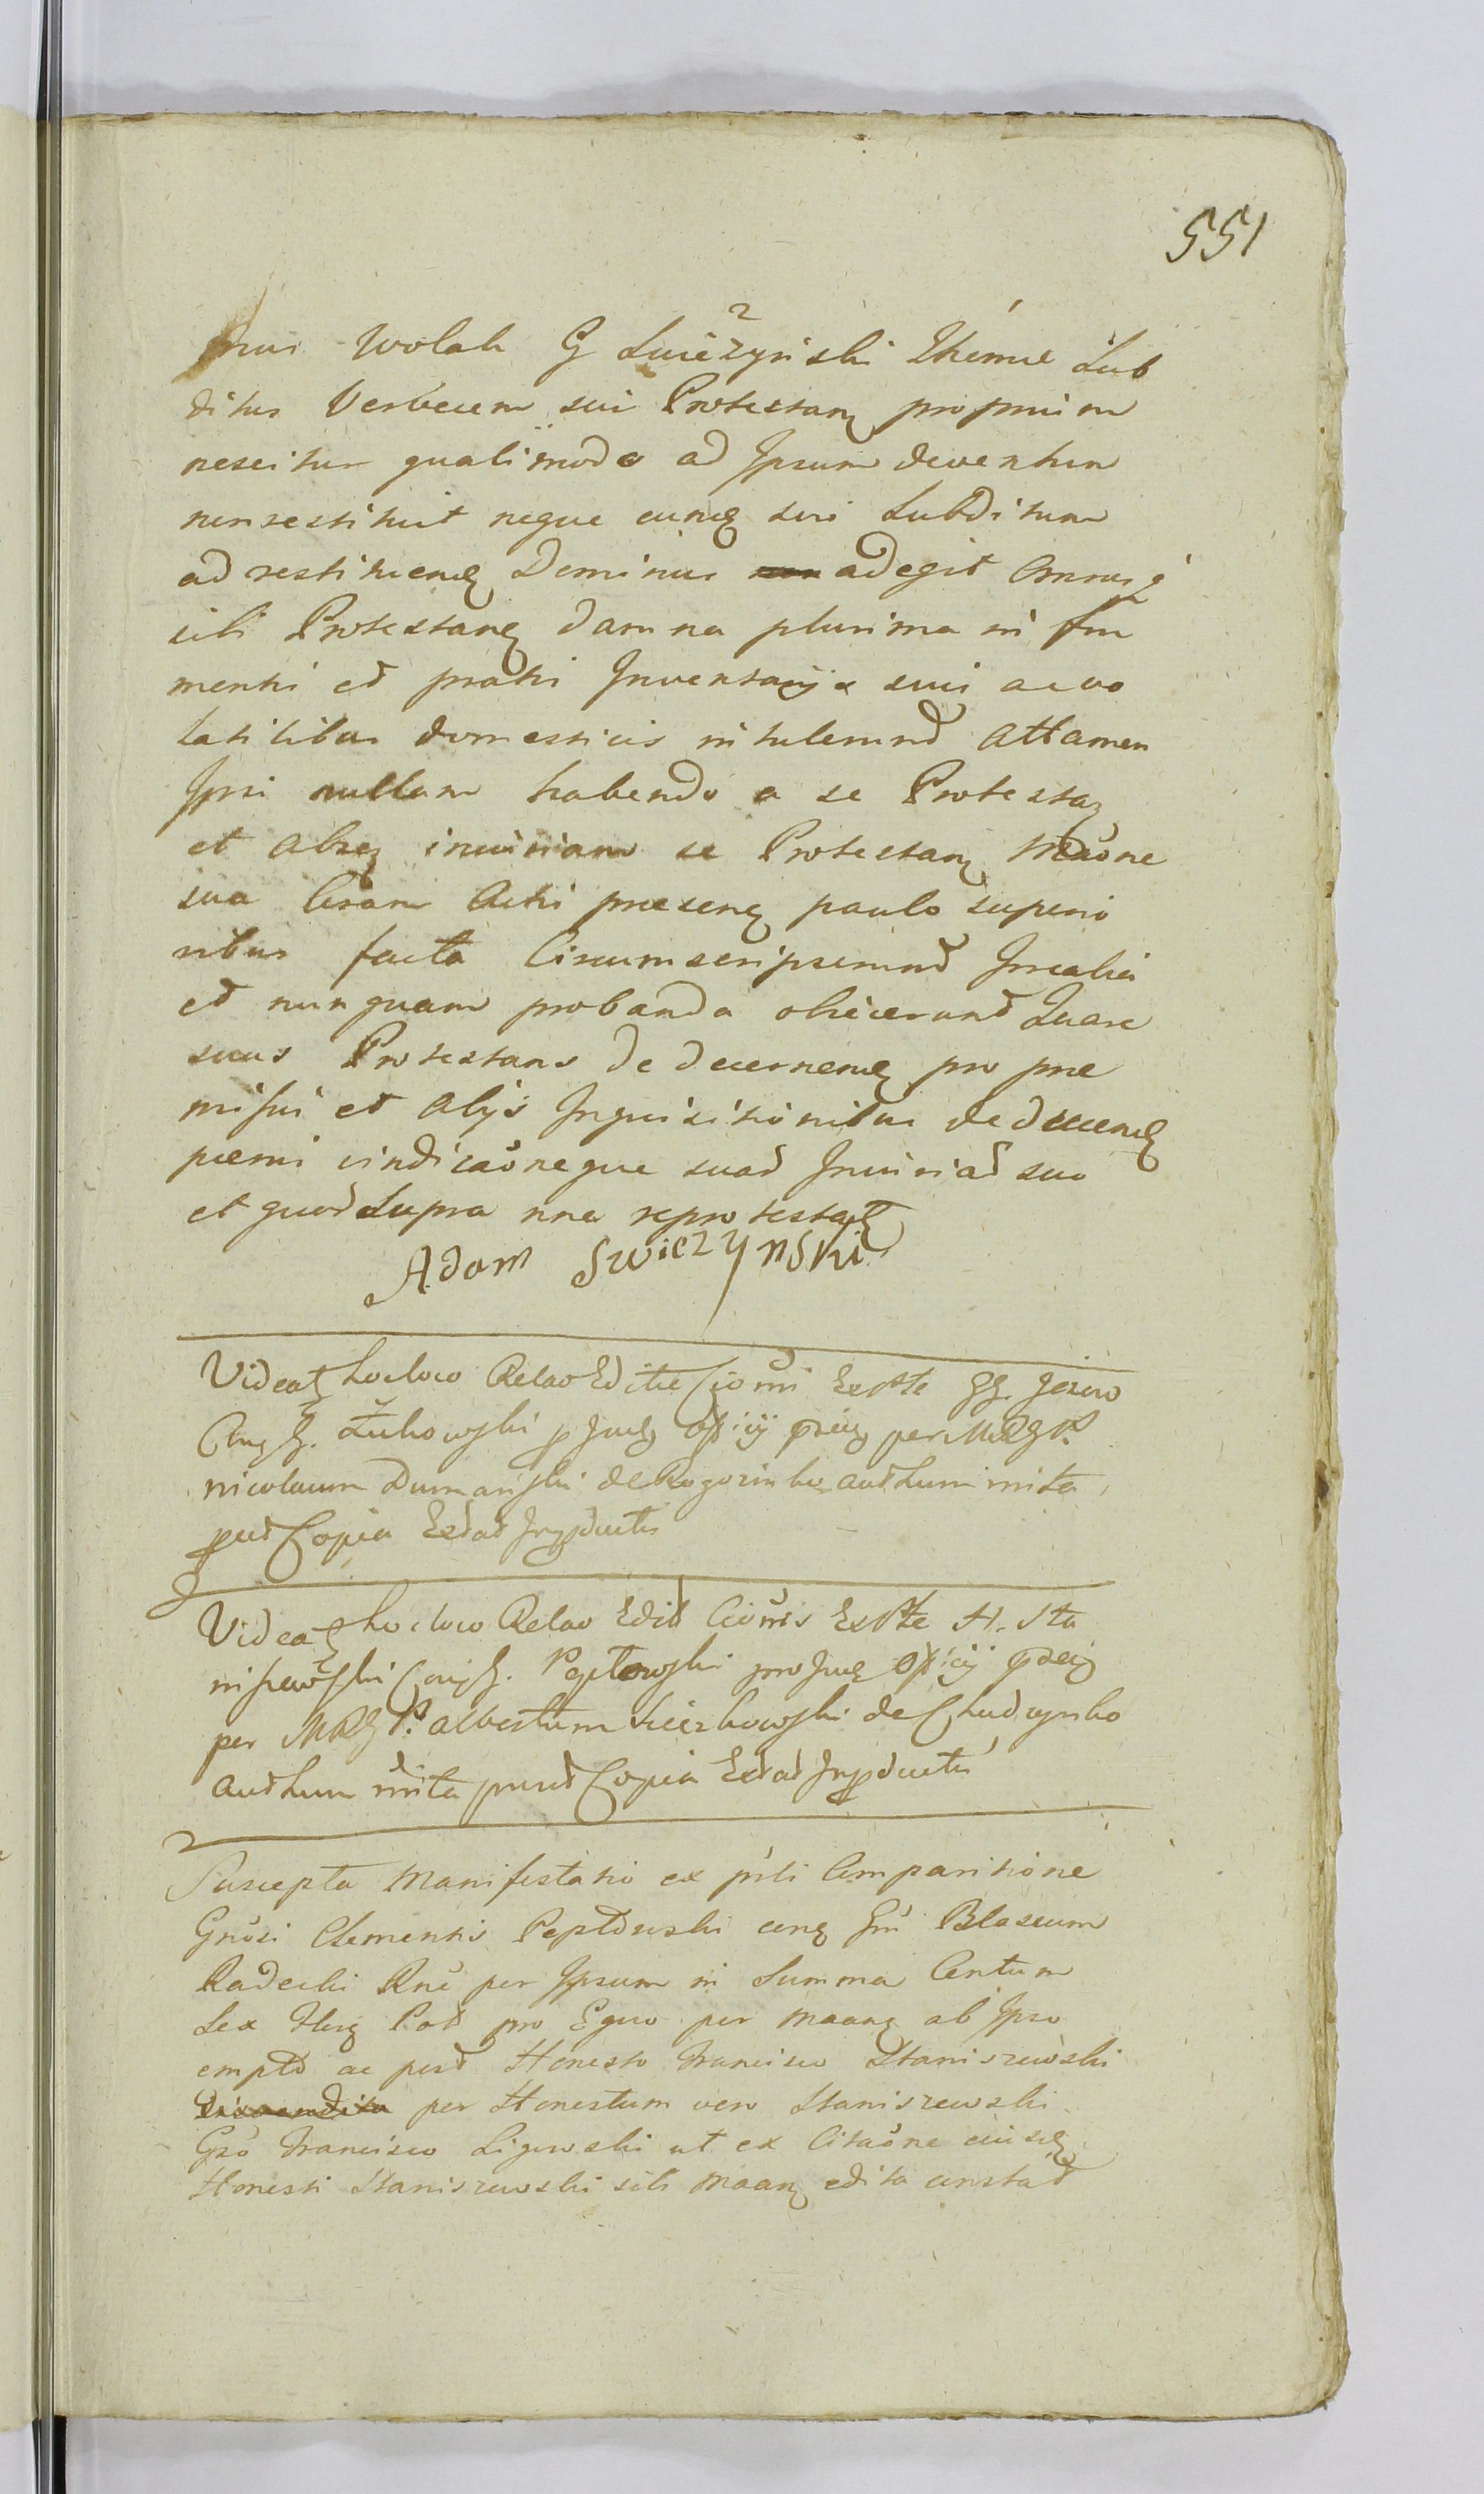 551
mus Wolak G Swiezynski Themae Sub
ditus Vervecem sui Protestanꝫ proprium
nescitur qualimodo ad Ipsum deventum
non restituit neque eundꝫ sui Subditum
ad restituendꝫ Dominus adegit
sibi Protestanꝫ damna plurima in fru
mentis et pratis Inventarijs suis ac vo
latilibus domesticis intulerunt Attamen
Ipsi nullam habendo a se Protestaꝫ
et absqꝫ iniuriam se Protestanꝫ Mãone
sua Coram Actis presenꝫ paulo superio
ribus facta Circumscripserunt Irrealia
et nunquam probanda obiecerunt Quare
suus Protestans de decernendꝫ pro prae
missis et Alijs Inquisitionibus de decernendꝫ
paenis vindicãoneque suar Iniuriar suo
et quod Supra nne reprotestatꝫ
Adam Swiczynski
Videatꝫ hocloco Relao Editae Ciõnis Ex Pte GG. Jezewo
Conꝫ G. Żukowski p Judꝫ Officij pñtꝫ per MRGP.
nicolaum Dumanski de Rogozinko authum mita
put Copia Extat Inpducta
Videatꝫ hocloco Relao Edit Ciõnis Ex Pte H. Sta
niszewski Conꝫ G. Peptowski pro Judꝫ Officij pñtꝫ
per MRG P. Albertum Sierkowski de Chudzynko
authum mita prout Copia Extat Inpducta
Suscepta Manifestatio ex pñti Comparitione
Gnõsi Clementis Peptowski conꝫ Gm Blasium
Radecki Rne per Ipsum in Summa Centum
Sex flrꝫ Pol pro Equo per Maanꝫ ab Ipso
empto ac post Honesto Francisco Staniszewski
per Honestum vero Staniszewski
Gso Francisco Ligowski ut ex Citaõne eiusdꝫ
Honesti Staniszewski sibi Maanꝫ edita constat